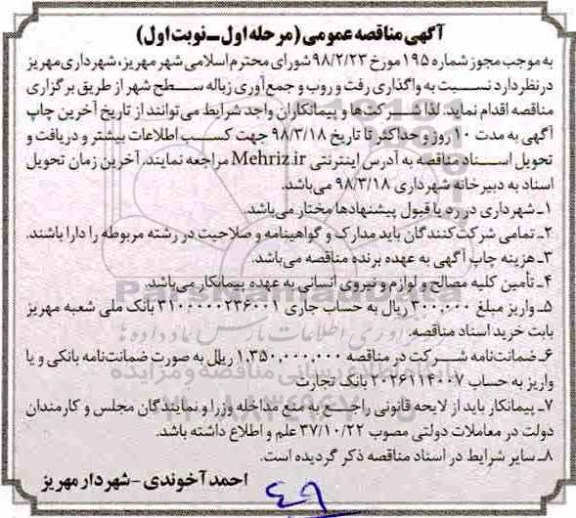 آگهی مناقصه عمومی (مرحله اول ـ نوبت اول)
به موجب مجوز شماره ۱۹۵ مورخ ۹۸/۲/۲۳ شورای محترم اسلامی شهر مهریز، شهرداری مهریز
در نظر دارد نسبت به واگذاری رفت و روب و جمع‌آوری زباله سطح شهر از طریق برگزاری
مناقصه اقدام نماید؛ لذا شرکت‌ها و پیمانکاران واجد شرایط می‌توانند از تاریخ آخرین چاپ
آگهی به مدت ۱۰ روز و حداکثر تا تاریخ ۹۸/۳/۱۸ جهت کسب اطلاعات بیشتر و دریافت و
تحویل اسناد مناقصه به آدرس اینترنتی Mehriz.ir مراجعه نمایند. آخرین زمان تحویل
اسناد به دبیرخانه شهرداری ۹۸/۳/۱۸ می‌باشد.
۱ـ شهرداری در رد یا قبول پیشنهادها مختار می‌باشد.
۲ـ تمامی شرکت‌کنندگان باید مدارک و گواهینامه و صلاحیت در رشته مربوطه را دارا باشند.
۳ـ هزینه چاپ آگهی به عهده برنده مناقصه می‌باشد.
۴ـ تأمین کلیه مصالح و لوازم و نیروی انسانی به عهده پیمانکار می‌باشد.
۵ـ واریز مبلغ ۳۰۰,۰۰۰ ریال به حساب جاری ۳۱۰۰۰۰۰۲۳۶۰۰۱ بانک ملی شعبه مهریز
بابت خرید اسناد مناقصه.
۶ـ ضمانت‌نامه شرکت در مناقصه ۱,۳۵۰,۰۰۰,۰۰۰ ریال به صورت ضمانت‌نامه بانکی و یا
واریز به حساب ۲۰۲۶۱۱۴۰۰۷ بانک تجارت
۷ـ پیمانکار باید از لایحه قانونی راجع به منع مداخله وزرا و نمایندگان مجلس و کارمندان
دولت در معاملات دولتی مصوب ۳۷/۱۰/۲۲ علم و اطلاع داشته باشد.
۸ـ سایر شرایط در اسناد مناقصه ذکر گردیده است.
احمد آخوندی - شهردار مهریز
۴۹